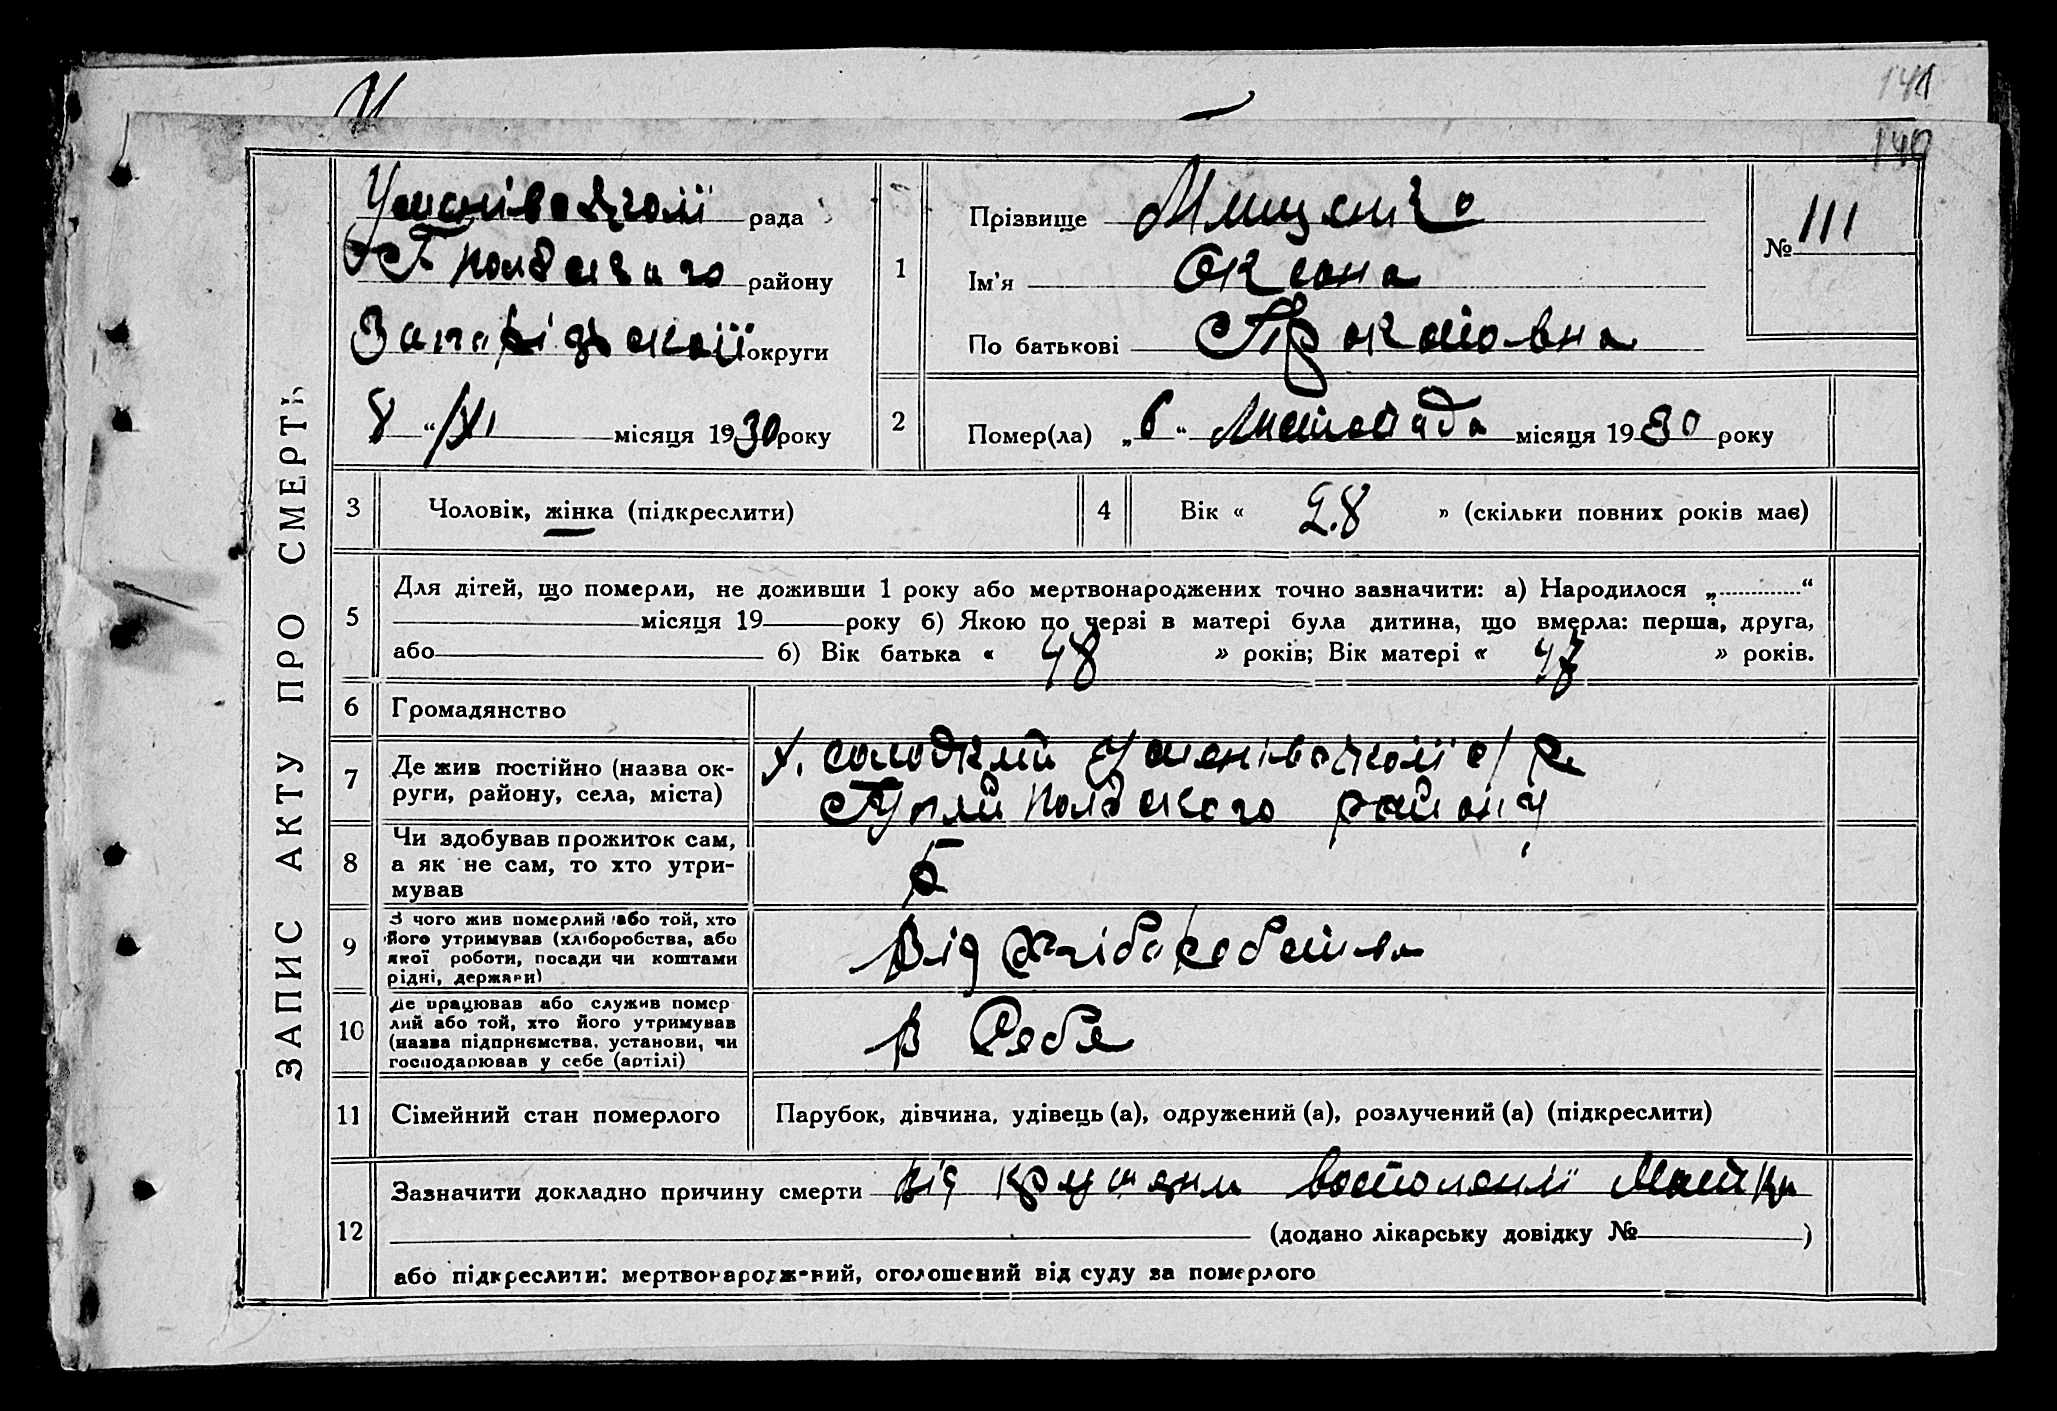 141
140
ЗАПИС АКТУ ПРО СМЕРТЬ
Успенівської рада
району
Запорізької округи
8 “ XI місяця 1930 року
1
Прізвище Мищенко
Ім'я Оксана
По батькові
№ 111
2
Помер(ла) „6“ Листопада місяця 1930 року
3
Чоловік, жінка (підкреслити)
4
Вік « 28 » (скільки повних років має)
5
Для дітей, що померли, не доживши 1 року або мертвонароджених точно зазначити: а) Народилося „ “
місяця 19 року б) Якою по черзі в матері була дитина, що вмерла: перша, друга,
або б) Вік батька « 48 » років; Вік матері « 47 » років.
6
Громадянство
7
Де жив постійно (назва ок-
руги, району, села, міста)
х. Солодкий Успенівської с/р
Гуляйпольского району
8
Чи здобував прожиток сам,
а як не сам, то хто утри-
мував
9
З чого жив померлий або той, хто
його утримував (хліборобства, або
якої роботи, посади чи коштами
рідні, держави)
Від хліборобства
10
Де працював або служив помер
лий або той, хто його утримував
(назва підприємства, установи, чи
господарював у себе (артілі)
в себе
11
Сімейний стан померлого
Парубок, дівчина, удівець (а), одружений (а), розлучений (а) (підкреслити)
12
Зазначити докладно причину смерти від матки
(додано лікарську довідку № )
або підкреслити: мертвонароджений, оголошений від суду за померлого